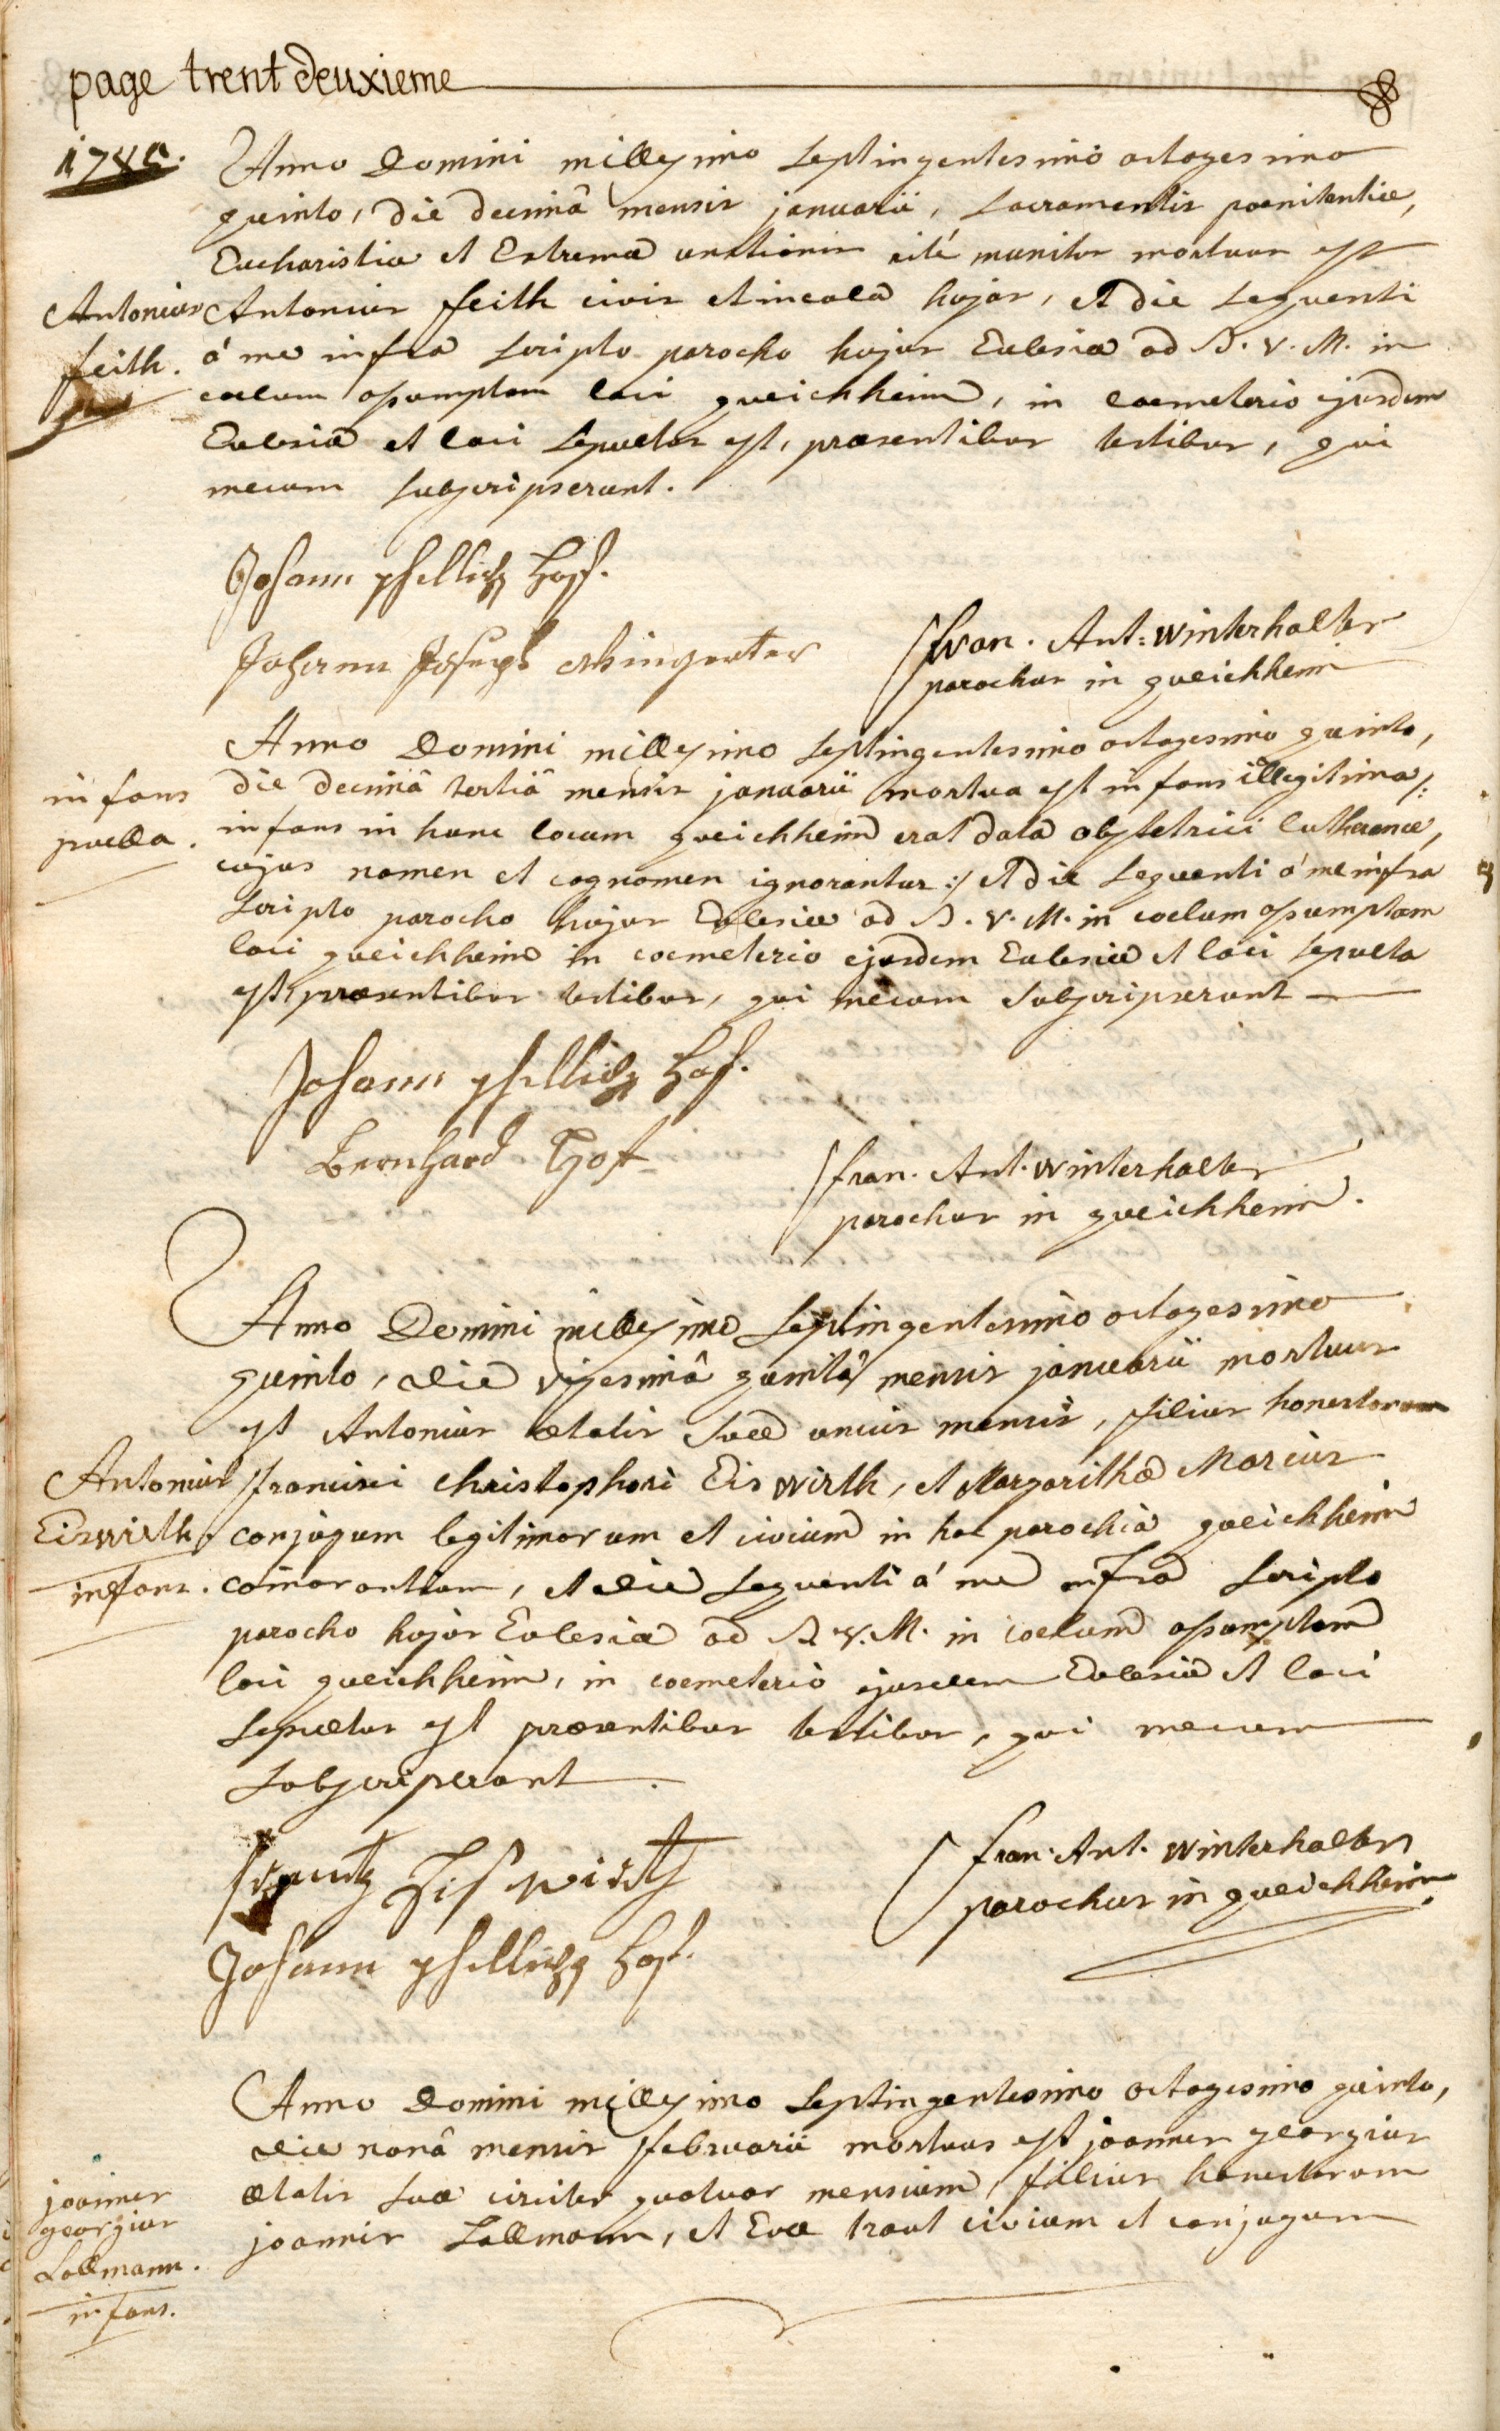 page trent deuxieme
1785.
Anno Domini millesimo septingentesimo octogesimo
quinto, die decimâ mensis januarii, sacramentis poenitentiæ,
Eucharistiæ et Extremæ unctionis ritè munitus mortuus est
Antonius
feith.
Antonius feith civis et incola hujas, et die sequenti
á me infra scripto parocho hujus Eclesiæ ad B. V. M. in
coelum assumptam loci queichheim, in coemeterio ejusdem
Eclesiæ et loci sepultus est, præsentibus testibus, qui
mecum subscripserunt.
Johann phillips Hoff.
Johann Joseph
fran. Ant: Winterhalter
parochus in queichheim
Anno Domini millesimo septingentesimo octogesimo quinto,
infans
puella.
die decimâ tertiâ mensis januarii mortua est infans illegitima /:
infans in hunc locum queichheim erat data obstetrici lutheranæ,
cujus nomen et cognomen ignorantur :/ et die sequenti á me infra
scripto parocho hujus Eclesiæ ad B. V. M. in coelum assumptam
loci queichheim in coemeterio ejusdem Eclesiæ et loci sepulta
est, præsentibus testibus, qui mecum subscripserunt
Johann phillips Hoff.
Bernhard Hoff
fran. Ant. Winterhalter
parochus in queichheim.
Anno Domini millesimo septingentesimo octogesimo
quinto, die vigesimâ quintâ mensis januarii mortuus
est Antonius ætatis suæ unius mensis, filius honestorum
Antonius
Eiswirth
infans.
francisci christophori Eiswirth, et Margarithæ Marcius
conjugum legitimorum et civium in hac parochiâ queichheim
com̃orantium, et die sequenti á me infra scripto
parocho hujus Eclesiæ ad B. V. M. in coelum assumptam
loci queichheim, in coemeterio ejusdem Eclesiæ et loci
sepultus est præsentibus testibus, qui mecum
subscripserunt.
frantz Eiswirth
Johann phillips Hoff.
fran. Ant. Winterhalter
parochus in queichheim.
Anno Domini millesimo septingentesimo octogesimo quinto,
die nonâ mensis februarii mortuus est joannes georgius
joannes
georgius
Sallmann.
infans.
ætatis suæ circiter quatuor mensium, filius honestorum
joannis Sallmann, et Evæ traut civium et conjugum